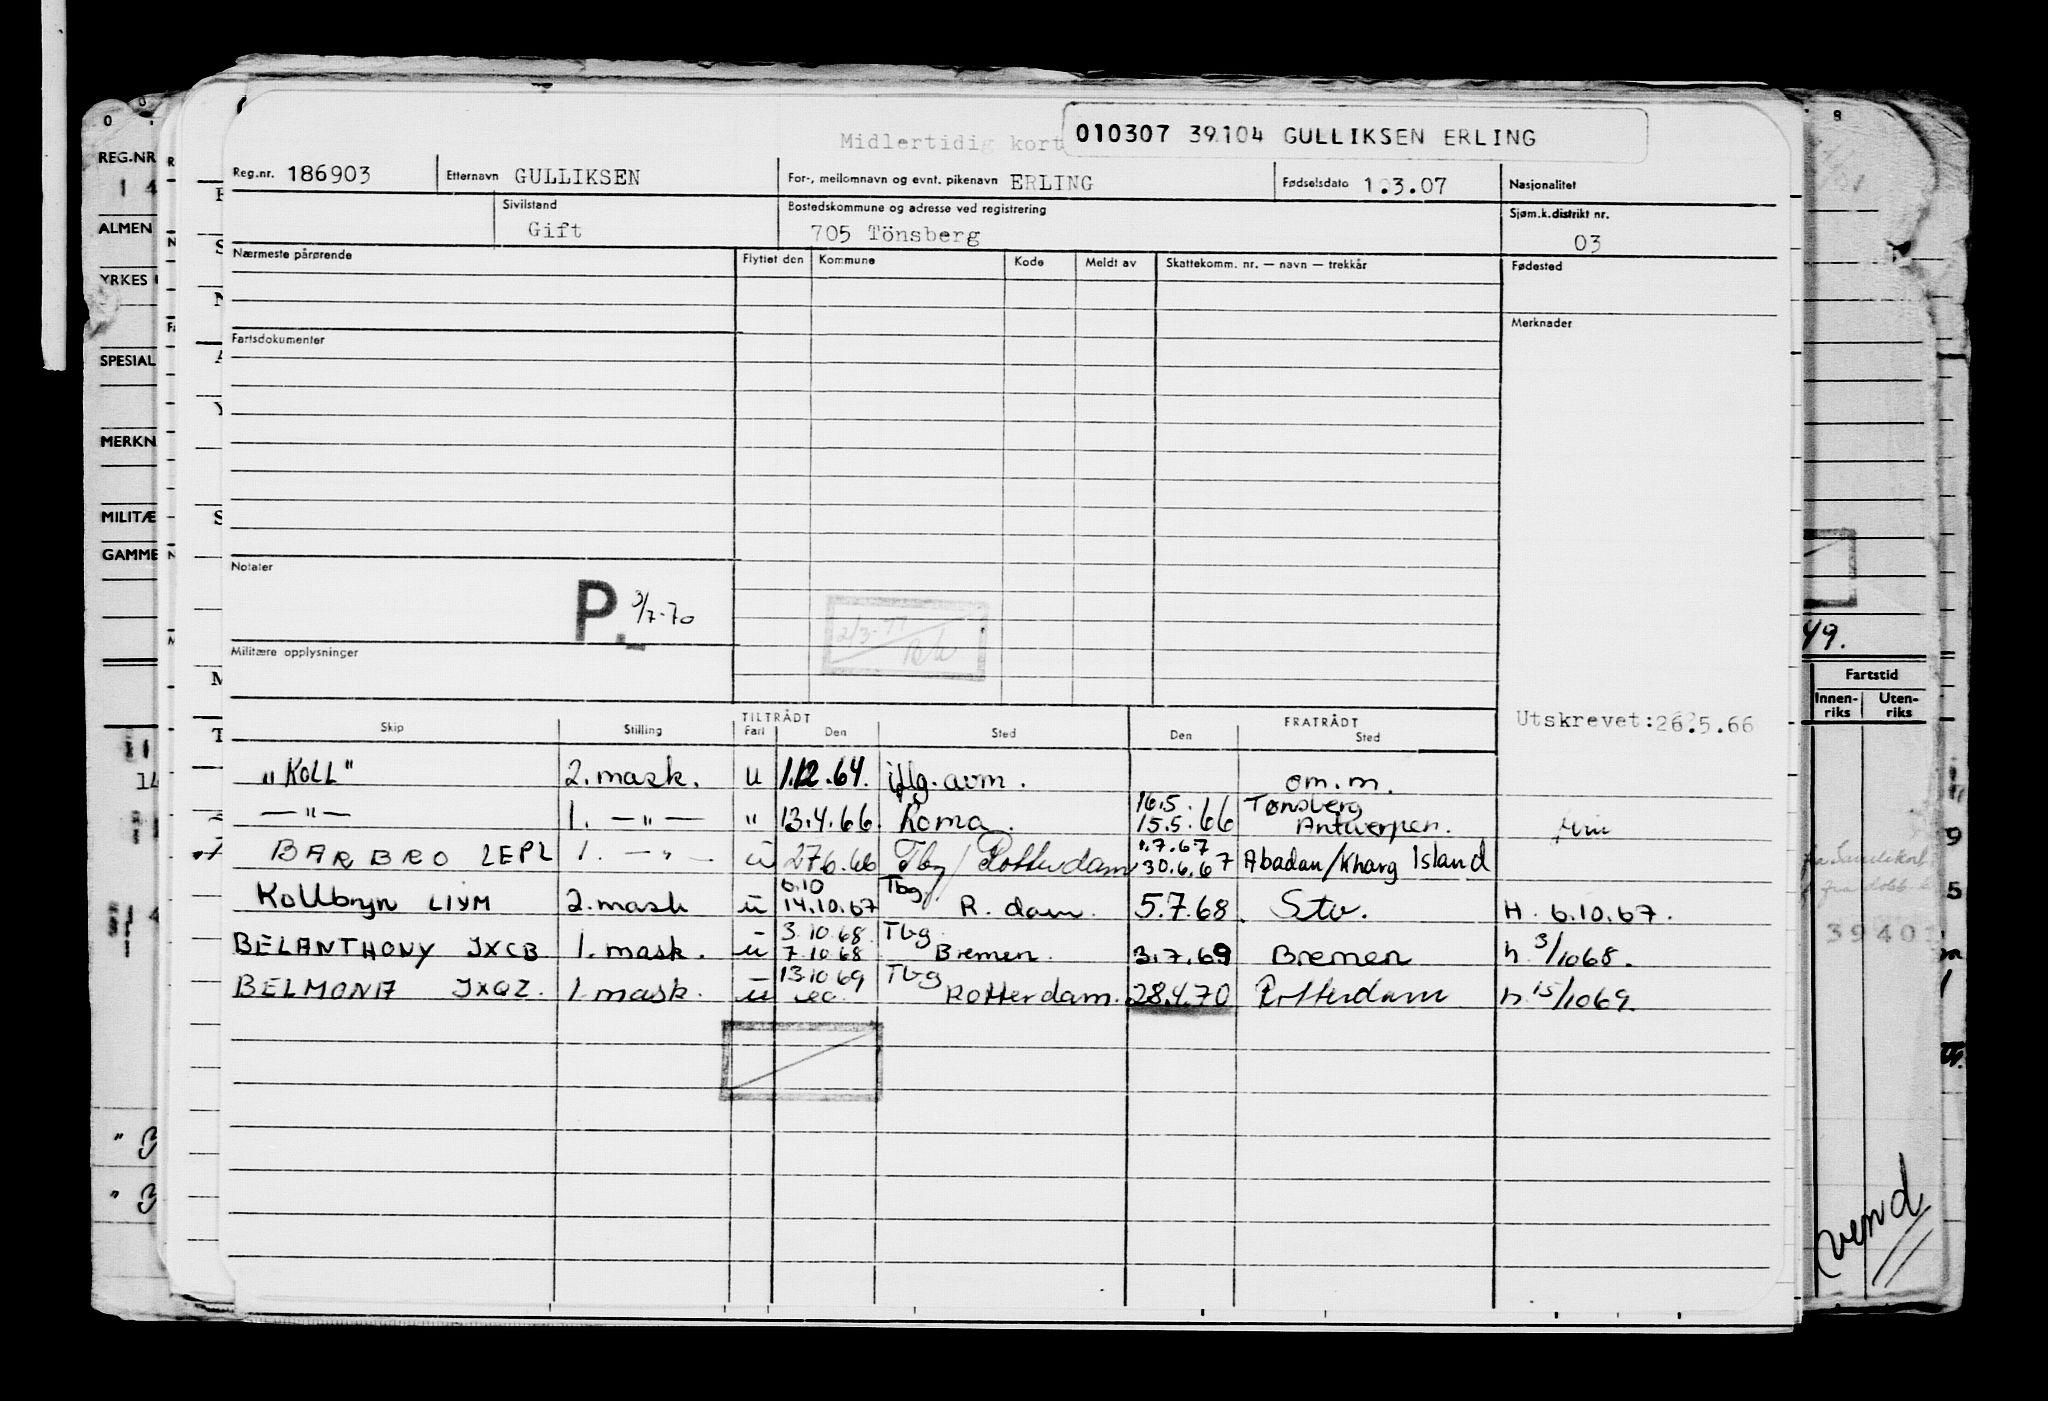 Midlertidig kort 010307 39104 GULLIKSEN ERLING
Reg.nr. 186903 Etternavn GULLIKSEN For-, mellomnavn og evnt. pikenavn ERLING Fødselsdato 1.3.07 Nasjonalitet
Sivilstand Gift Bostedskommune og adresse ved registrering 705 Tönsberg Sjøm.k.distrikt nr. 03
Nærmeste pårørende Flyttet den Kommune Kode Meldt av Skattekomm. nr. — navn — trekkår Fødested
Merknader
Fartsdokumenter
Notater
P. 3/7-70
Militære opplysninger
Utskrevet: 26.5.66
TILTRÅDT FRATRÅDT
Skip Stilling Fart Den Sted Den Sted
"KOLL" 2. mask. u 1.12.64. iflg. avm. om.m.
— " — 1. — " — " 13.4.66. Roma. 16.5. 15.5.66 Tønsberg Antwerpen.
BARBRO LEPL 1. — " — u 27.6.66 Tbg / Rotterdam 1.7.67 30.6.67 Abadan/Kharg Island
Kollbryn LIYM 2. mask u 6.10 14.10.67 Tbg. R. dam. 5.7.68. Stv. H. 6.10.67.
BELANTHONY JXCB 1. mask. u 3.10.68. 7.10.68 Tbg. Bremen. 3.7.69 Bremen h. 3/1068.
BELMONA JXQZ. 1. mask. u 13.10.69 Tbg Rotterdam. 28.4.70 Rotterdam h. 15/1069.
REG.NR
ALMEN
YRKES
SPESIAL
MERKN
MILITÆ
GAMME
49.
Fartstid
Innen-riks Uten-riks
vend